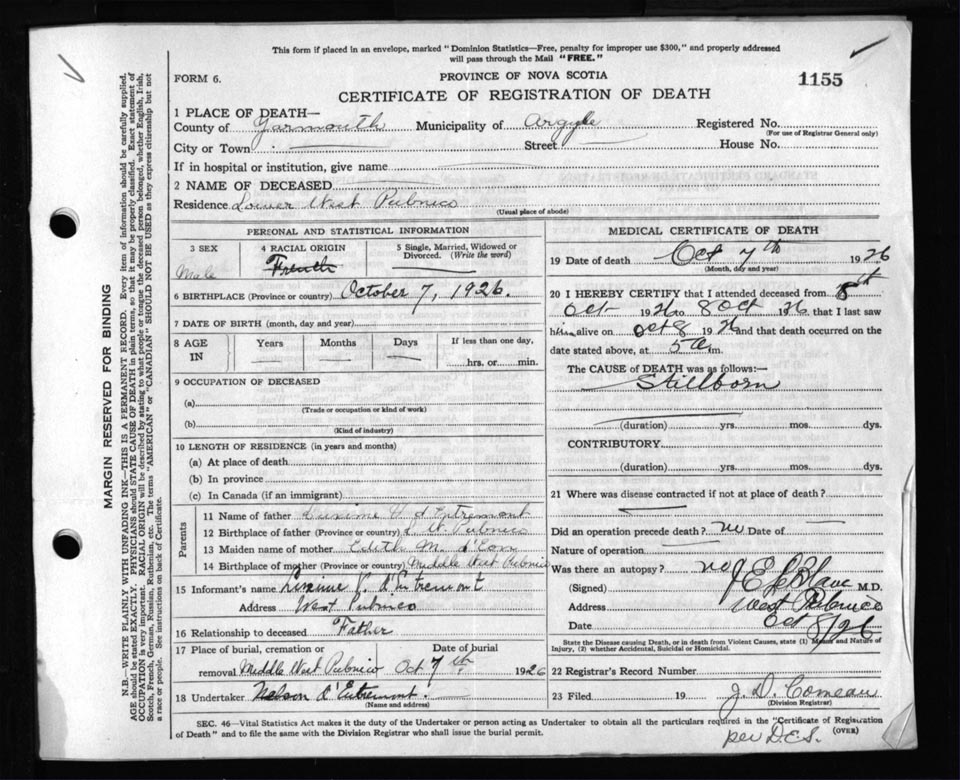 This form if placed in an envelope, marked "Dominion Statistics—Free, penalty for improper use $300," and properly addressed
will pass through the Mail "FREE."
FORM 6.
PROVINCE OF NOVA SCOTIA
1155
CERTIFICATE OF REGISTRATION OF DEATH
1 PLACE OF DEATH—
County of Yarmouth Municipality of Argyle Registered No.
(For use of Registrar General only)
City or Town Street House No.
If in hospital or institution, give name
2 NAME OF DECEASED
Residence Lower West Pubnico
(Usual place of abode)
PERSONAL AND STATISTICAL INFORMATION
3 SEX 4 RACIAL ORIGIN 5 Single, Married, Widowed or Divorced. (Write the word)
Male French
6 BIRTHPLACE (Province or country) October 7, 1926.
7 DATE OF BIRTH (month, day and year)
8 AGE IN Years Months Days If less than one day,
hrs. or min.
9 OCCUPATION OF DECEASED
(a)
(Trade or occupation or kind of work)
(b)
(Kind of industry)
10 LENGTH OF RESIDENCE (in years and months)
(a) At place of death
(b) In province
(c) In Canada (if an immigrant)
Parents
11 Name of father d'Entremont
12 Birthplace of father (Province or country) L. W. Pubnico
13 Maiden name of mother Edith M. d'Eon
14 Birthplace of mother (Province or country) Middle West Pubnico
15 Informant's name d'Entremont
Address West Pubnico
16 Relationship to deceased Father
17 Place of burial, cremation or removal Date of burial
Middle West Pubnico Oct 7th 1926
18 Undertaker Nelson d'Entremont.
(Name and address)
MEDICAL CERTIFICATE OF DEATH
19 Date of death Oct 7th 1926
(Month, day and year)
20 I HEREBY CERTIFY that I attended deceased from 8th
Oct 1926 to 8 Oct 1926 that I last saw
him alive on Oct 8 1926 and that death occurred on the
date stated above, at 5 a m.
The CAUSE of DEATH was as follows:—
Stillborn
(duration) yrs. mos. dys.
CONTRIBUTORY
(duration) yrs. mos. dys.
21 Where was disease contracted if not at place of death?
Did an operation precede death? no Date of
Nature of operation
Was there an autopsy? no
(Signed) J E LeBlanc M.D.
Address West Pubnico
Date Oct 8/26
State the Disease causing Death, or in death from Violent Causes, state (1) Means and Nature of
Injury, (2) whether Accidental, Suicidal or Homicidal.
22 Registrar's Record Number
23 Filed 19 J. D. Comeau
(Division Registrar)
per D.E.S.
SEC. 46—Vital Statistics Act makes it the duty of the Undertaker or person acting as Undertaker to obtain all the particulars required in the "Certificate of Registration
of Death" and to file the same with the Division Registrar who shall issue the burial permit.
(OVER)
MARGIN RESERVED FOR BINDING
N.B.—WRITE PLAINLY WITH UNFADING INK—THIS IS A PERMANENT RECORD. Every item of information should be carefully supplied.
AGE should be stated EXACTLY. PHYSICIANS should STATE CAUSE OF DEATH in plain terms, so that it may be properly classified. Exact statement of
OCCUPATION is very important. RACIAL ORIGIN will be described by stating to what people or tongue the deceased person belonged, whether English, Irish,
Scotch, French, German, Russian, Ruthenian, etc. The terms "AMERICAN" or "CANADIAN" SHOULD NOT BE USED as they express citizenship but not
a race or people. See instructions on back of Certificate.